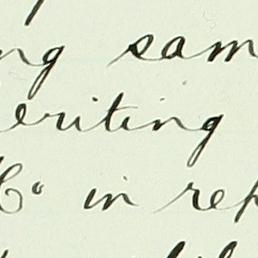 ng sam
eriting
Co in rep